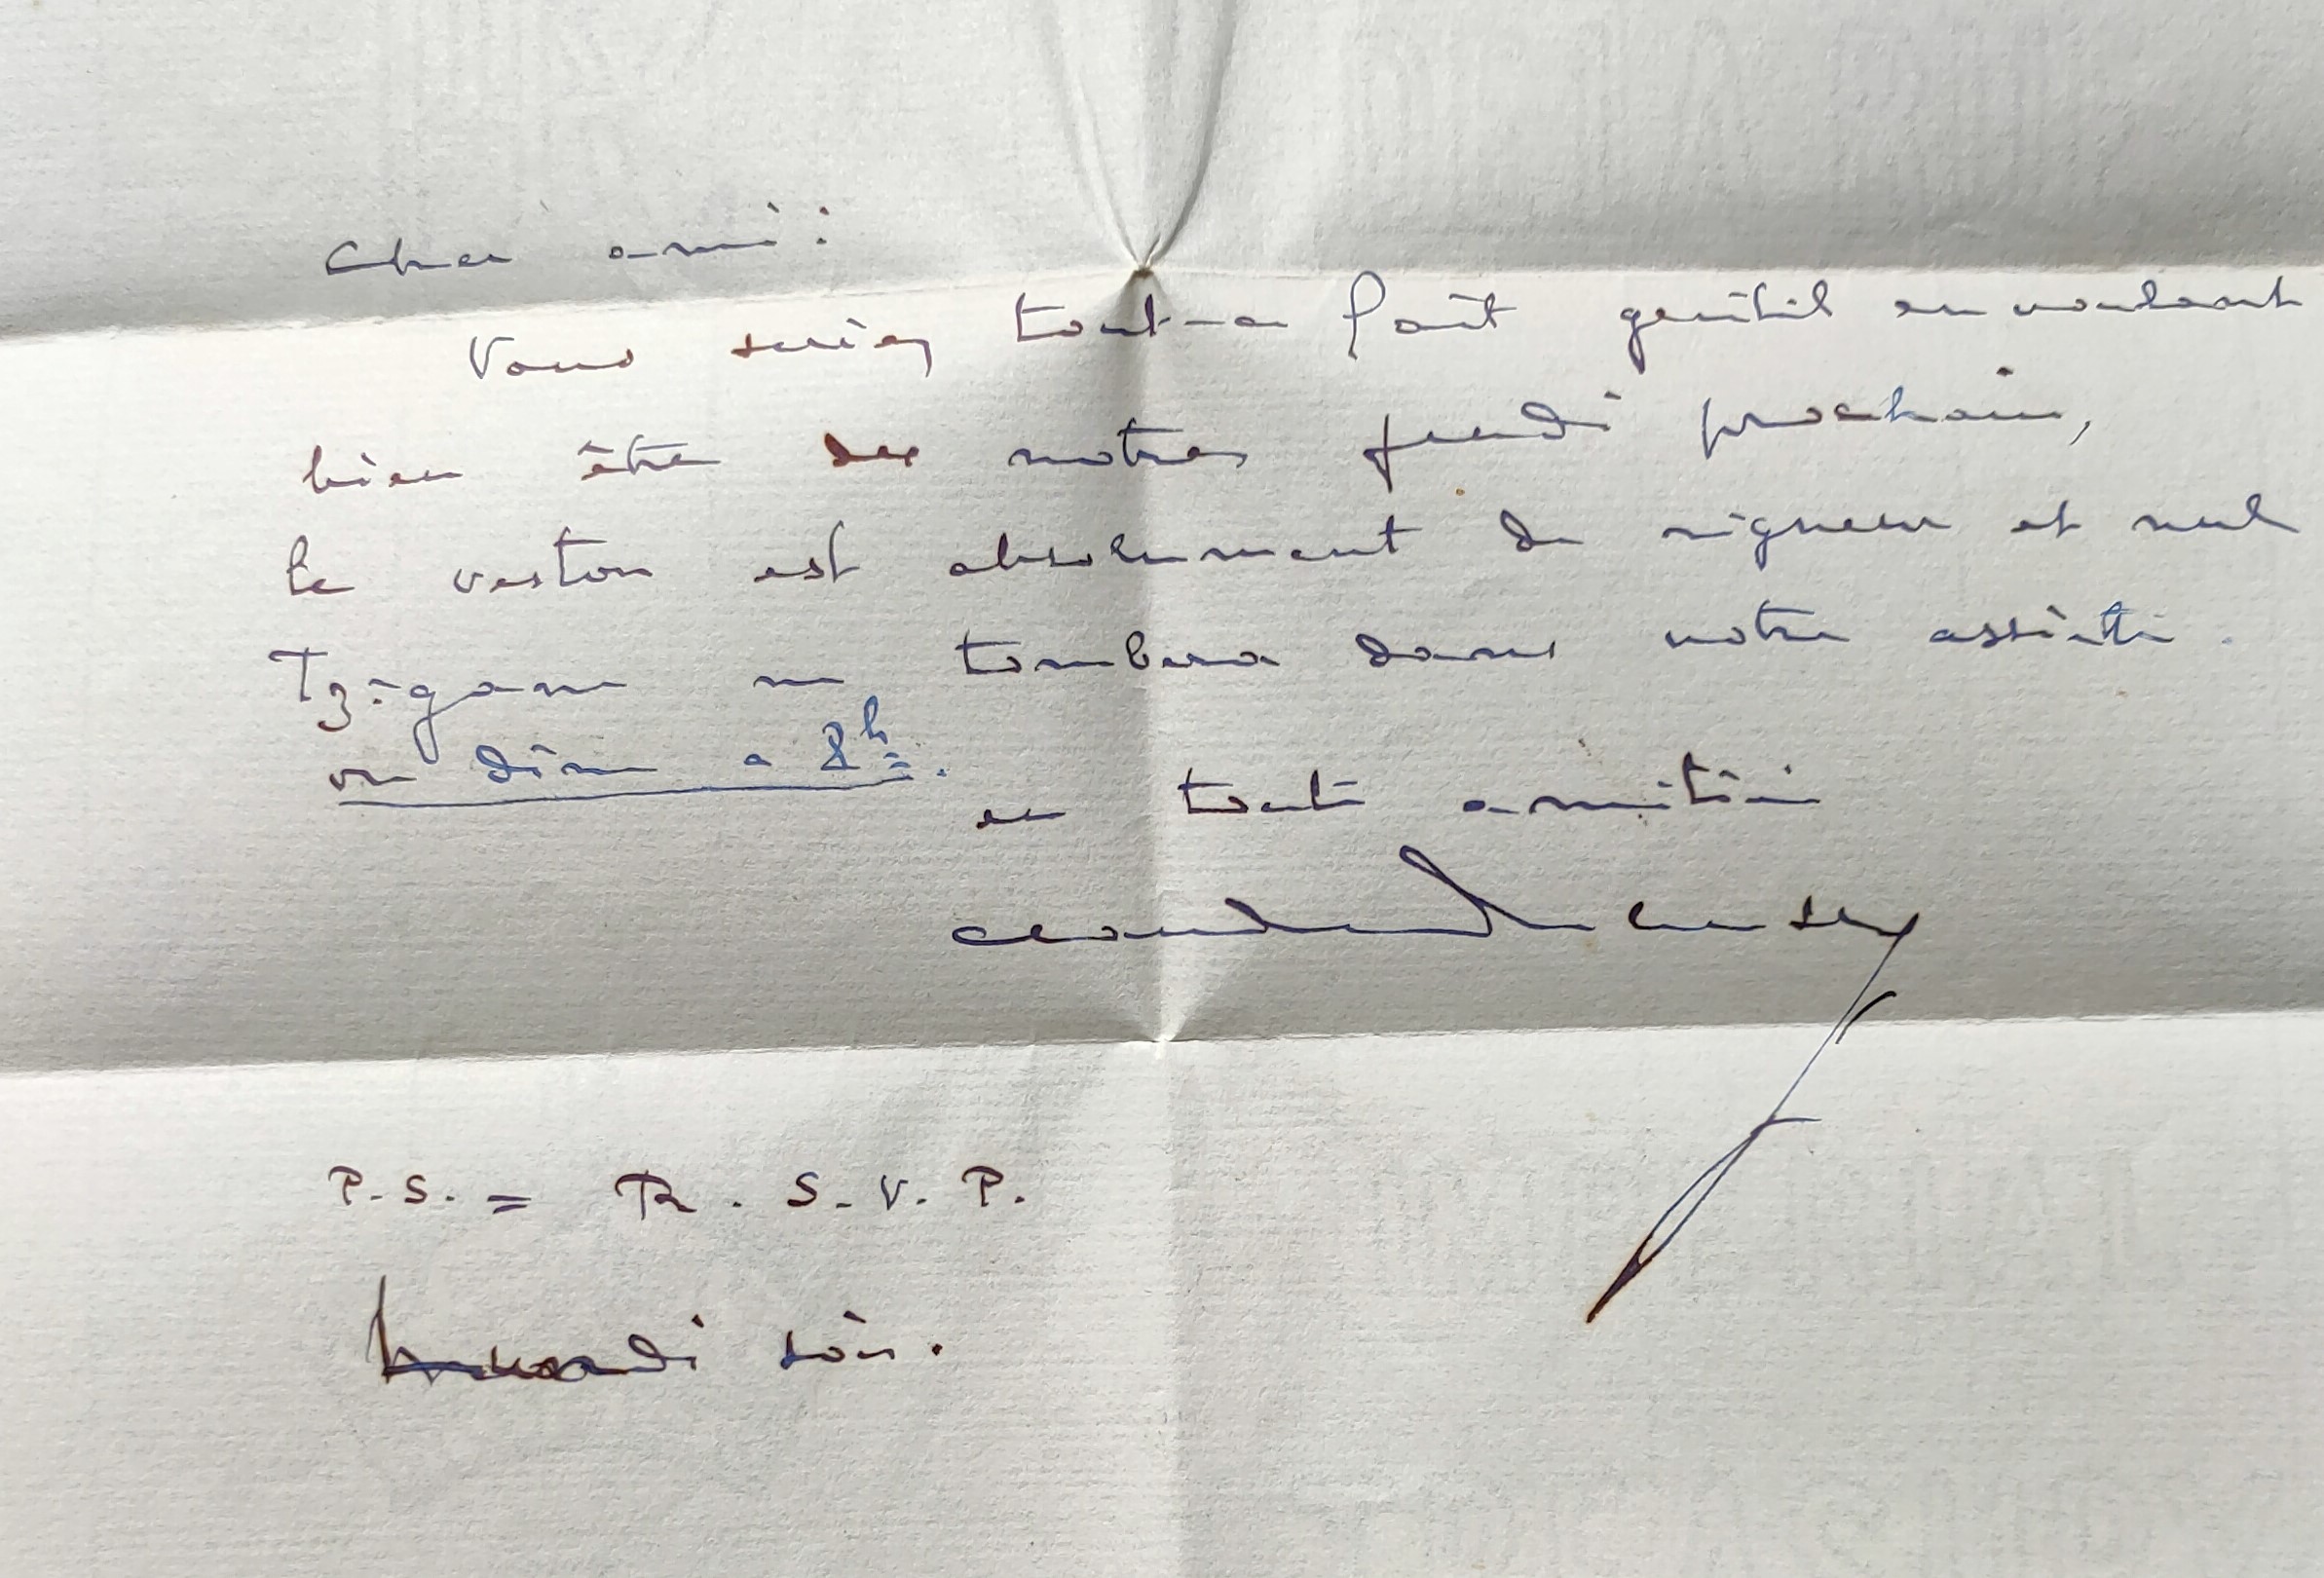 Cher ami :
Vous seriez tout-a fait gentil en voulant
bien être des notres jeudi prochain,
le veston est absolument de rigueur et nul
Tzigane ne tombera dans votre assiette.
on dine a 8h.
en toute amitié
Claude Debussy
P.S. = R. S. V. P.
soir.